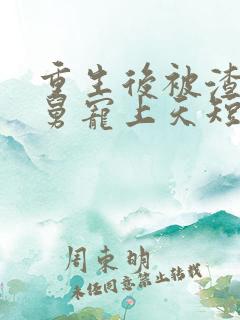 重生後被渣
舅寵上天短
周束明
未任同意禁止转载